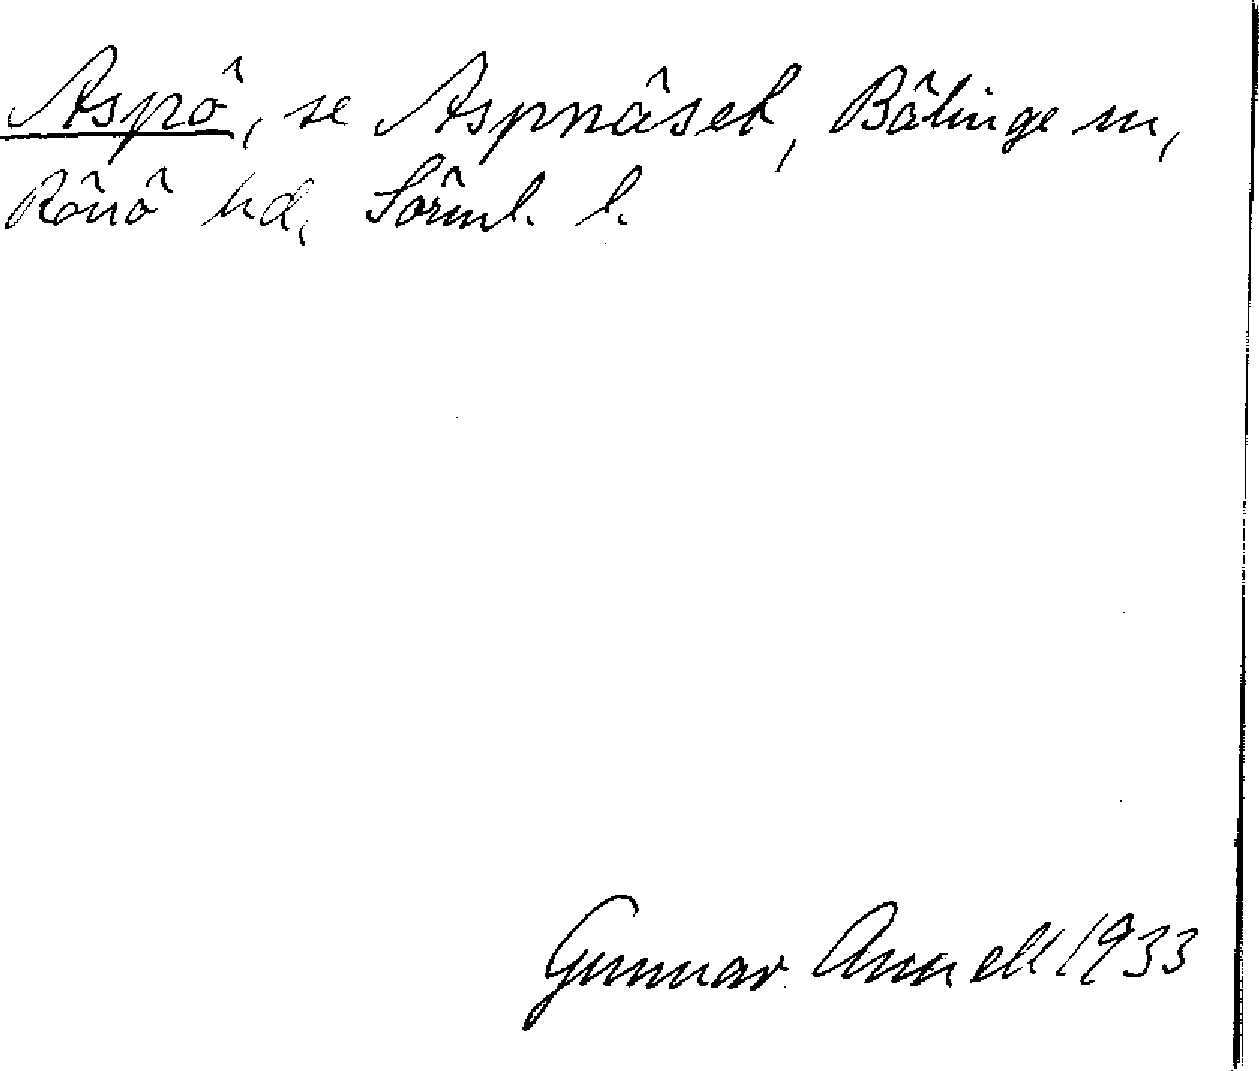 Aspö, se Aspnäset, Bälinge sn,
Rönö hd, Sörml. l.
Gunnar Annell 1933